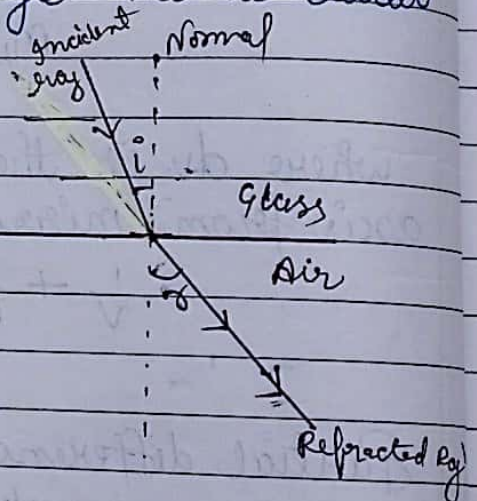 Incident Normal
ray
i
Glass
Air
r
Refracted Ray